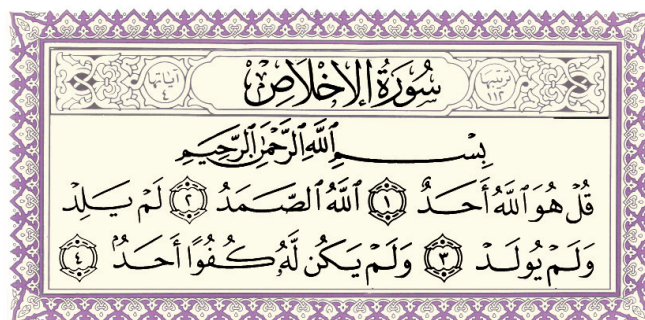 ترتيبها سُورَةُ الإِخْلَاصِ آياتها ٤
بِسْمِ ٱللَّهِ ٱلرَّحْمَٰنِ ٱلرَّحِيمِ
قُلْ هُوَ ٱللَّهُ أَحَدٌ ١ ٱللَّهُ ٱلصَّمَدُ ٢ لَمْ يَلِدْ
وَلَمْ يُولَدْ ٣ وَلَمْ يَكُن لَّهُۥ كُفُوًا أَحَدٌۢ ٤